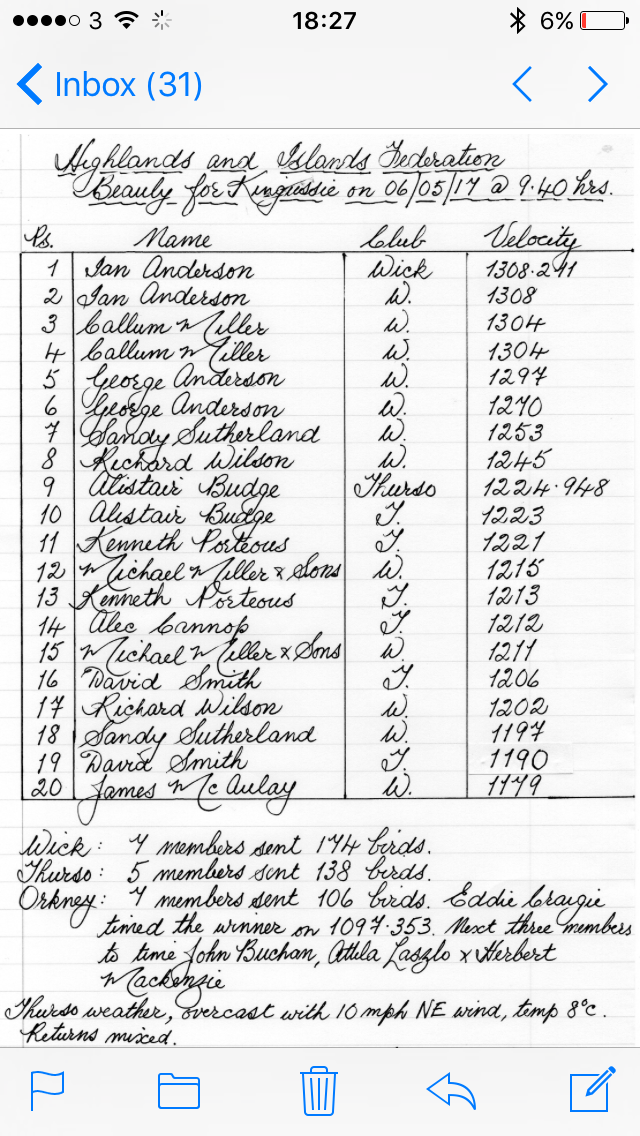 3 18:27 6%
Inbox (31)
Highlands and Islands Federation
Beauty for Kingussie on 06/05/17 @ 9.40 hrs.
Ps. Name Club Velocity
1 Ian Anderson Wick 1308.241
2 Ian Anderson W. 1308
3 Callum Miller W. 1304
4 Callum Miller W. 1304
5 George Anderson W. 1297
6 George Anderson W. 1270
7 Sandy Sutherland W. 1253
8 Richard Wilson W. 1245
9 Alistair Budge Thurso 1224.948
10 Alistair Budge T. 1223
11 Kenneth Porteous T. 1221
12 Michael Miller & Sons W. 1215
13 Kenneth Porteous T. 1213
14 Alec Cannop T. 1212
15 Michael Miller & Sons W. 1211
16 David Smith T. 1206
17 Richard Wilson W. 1202
18 Sandy Sutherland W. 1197
19 David Smith T. 1190
20 James McAulay W. 1179
Wick: 7 members sent 174 birds.
Thurso: 5 members sent 138 birds.
Orkney: 7 members sent 106 birds. Eddie Craigie
timed the winner on 1097.353. Next three members
to time John Buchan, Attila Laszlo & Herbert
Mackenzie
Thurso weather, overcast with 10 mph NE wind, temp 8°c.
Returns mixed.